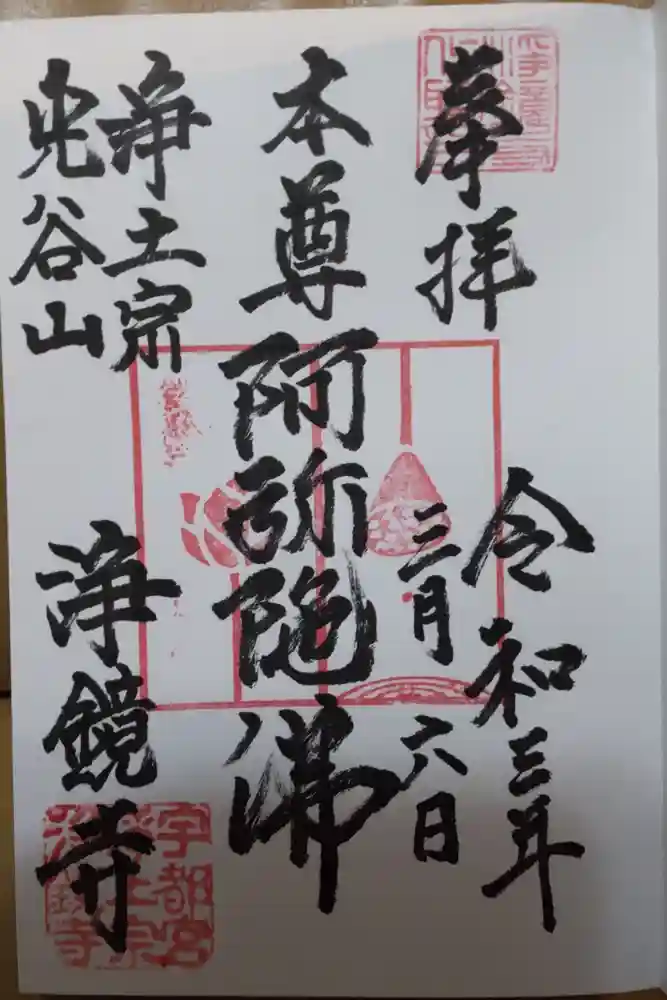 奉拝
令和三年
三月六日
本尊阿弥陀佛
浄土宗
谷山
浄鏡寺
宇都宮
浄土宗
浄鏡寺